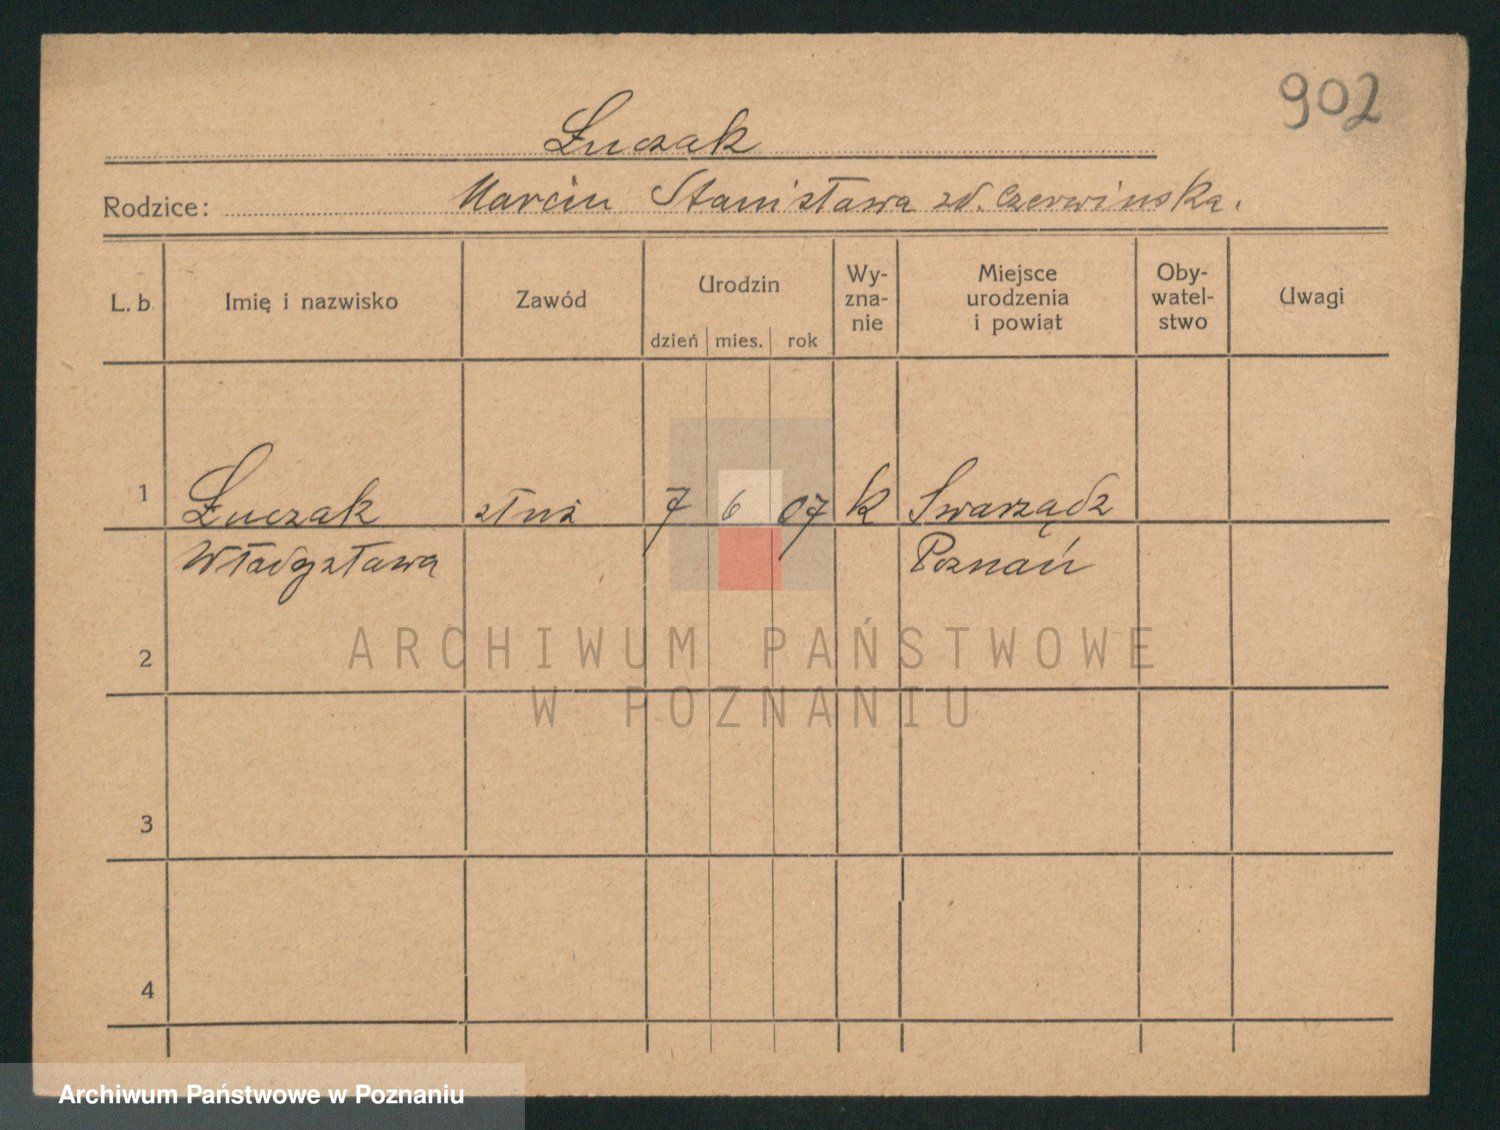 902
Łuczak
Rodzice: Marcin Stanisława zd. Czerwińska.
L. b. Imię i nazwisko Zawód Urodzin Wy-zna-nie Miejsce urodzenia i powiat Oby-watel-stwo Uwagi
dzień mies. rok
1 Łuczak służ 7 6 07 k Swarządz
Władysława Poznań
2
ARCHIWUM PAŃSTWOWE
W POZNANIU
3
4
Archiwum Państwowe w Poznaniu